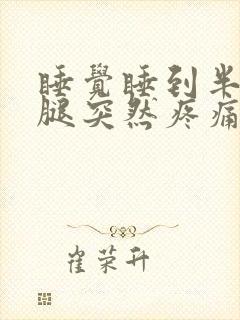 睡覺睡到半
腿突然疼痛
崔荣升